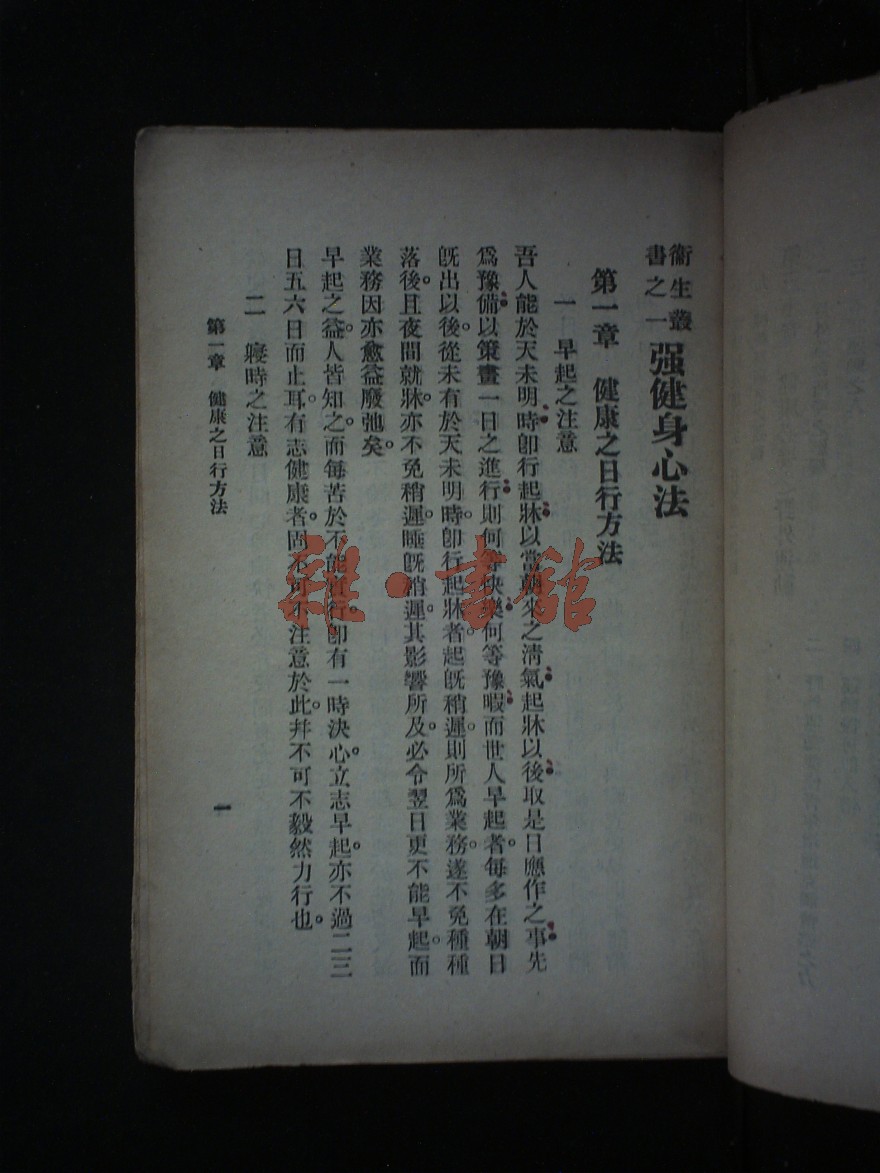 衞生叢書之一 强健身心法
第一章 健康之日行方法
一 早起之注意
吾人能於天未明時卽行起牀以當朝來之淸氣起牀以後取是日應作之事先
爲豫備以策畫一日之進行則何等快樂何等豫暇而世人早起者。每多在朝日
旣出以後。從未有於天未明時卽行起牀者。起旣稍遲則所爲業務。遂不免種種
落後。且夜間就牀亦不免稍遲。睡旣稍遲其影響所及必令翌日更不能早起。而
業務因亦愈益廢弛矣。
早起之益。人皆知之。而每苦於不能實行。卽有一時決心。立志早起。亦不過二三
日五六日而止耳。有志健康者。固不可不注意於此。幷不可不毅然力行也。
二 寢時之注意
第一章 健康之日行方法
一
雜·書館